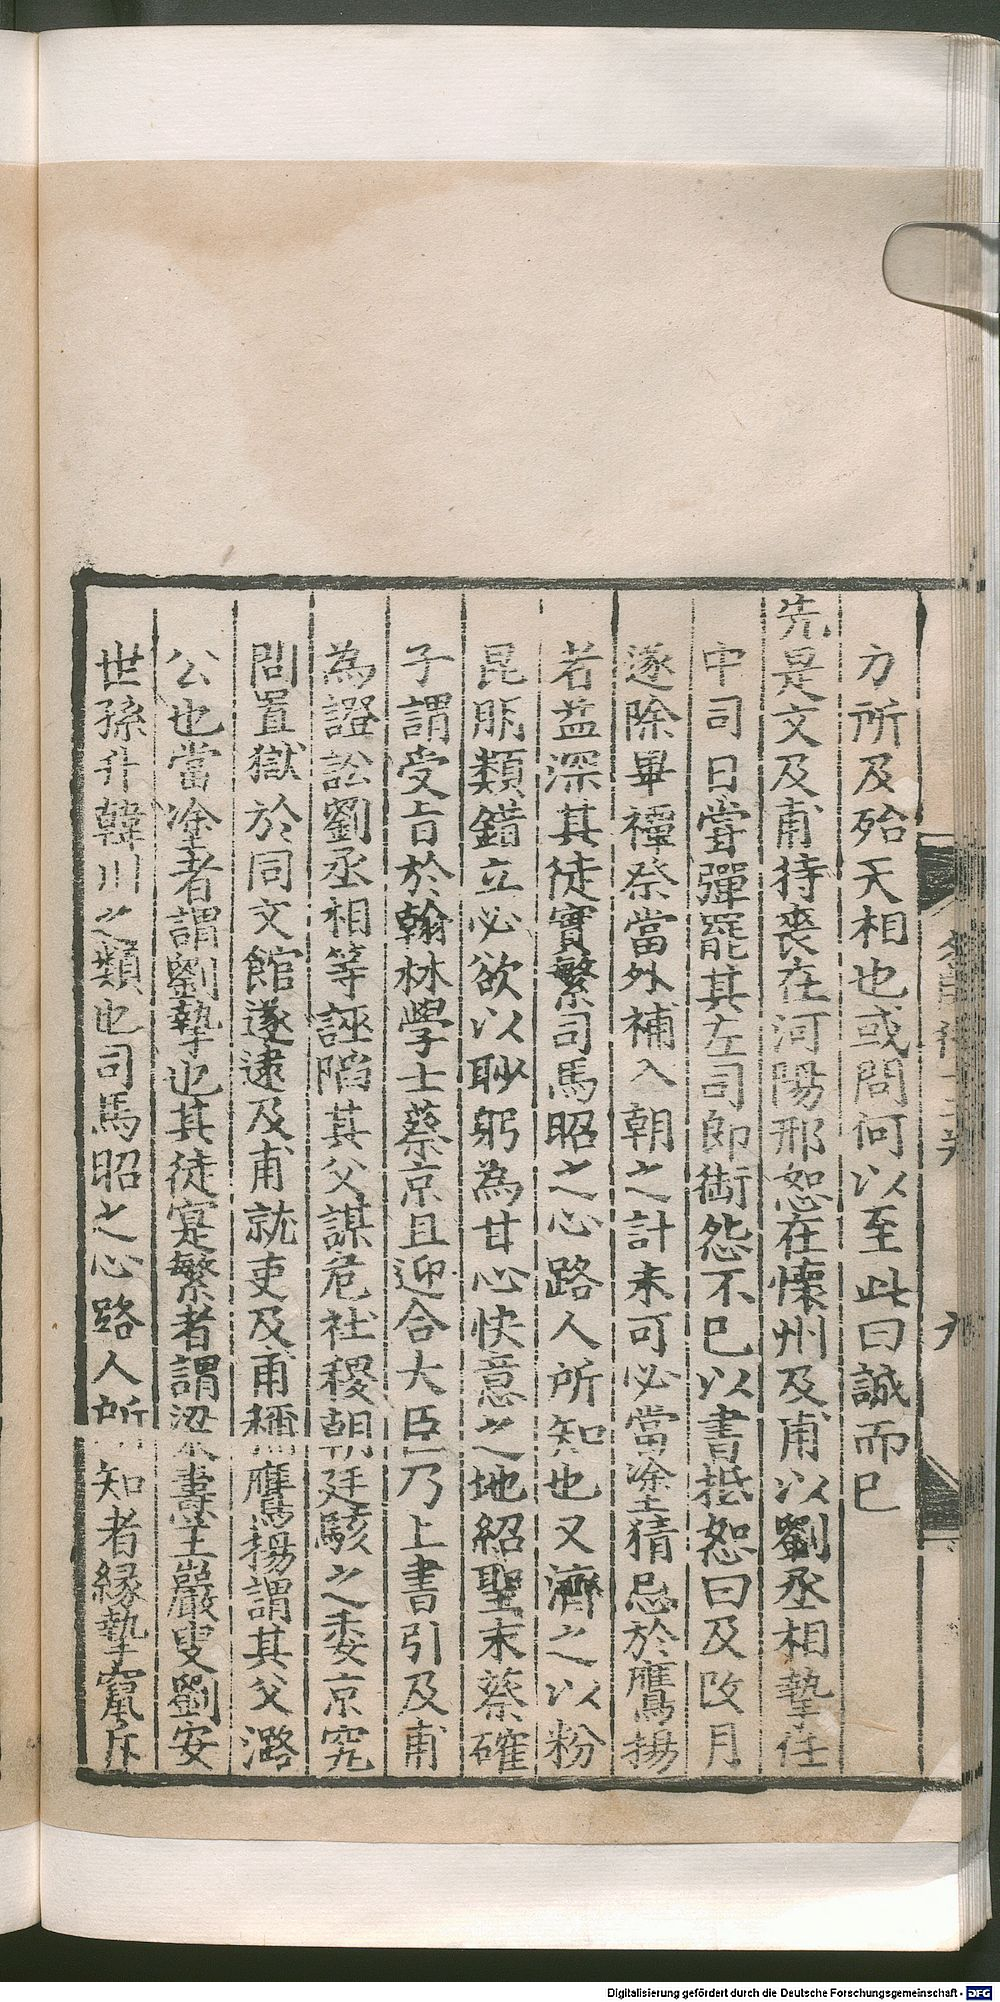 力所及殆天相也或問何以至此曰誠而已
先是文及甫持喪在河陽邢恕在懷州及甫以劉丞相摯任
中司日嘗彈罷其左司郎銜怨不已以書抵恕曰及改月
遂除畢禫祭當外補入朝之計未可必當塗猜忌於鷹揚
者益深其徒實繁司馬昭之心路人所知也又濟之以粉
昆朋類錯立必欲以眇躬為甘心快意之地紹聖末蔡確
子謂受旨於翰林學士蔡京且迎合大臣乃上書引及甫
為證訟劉丞相等誣陷其父謀危社稷朝廷駭之委京究
問置獄於同文館遂逮及甫就吏及甫稱鷹揚謂其父潞
公也當塗者謂劉摯也其徒寔繁者謂梁燾王巖叟劉安
世孫升韓川之類也司馬昭之心路人所知者緣摯竄斥
九
Digitalisierung gefördert durch die Deutsche Forschungsgemeinschaft - DFG